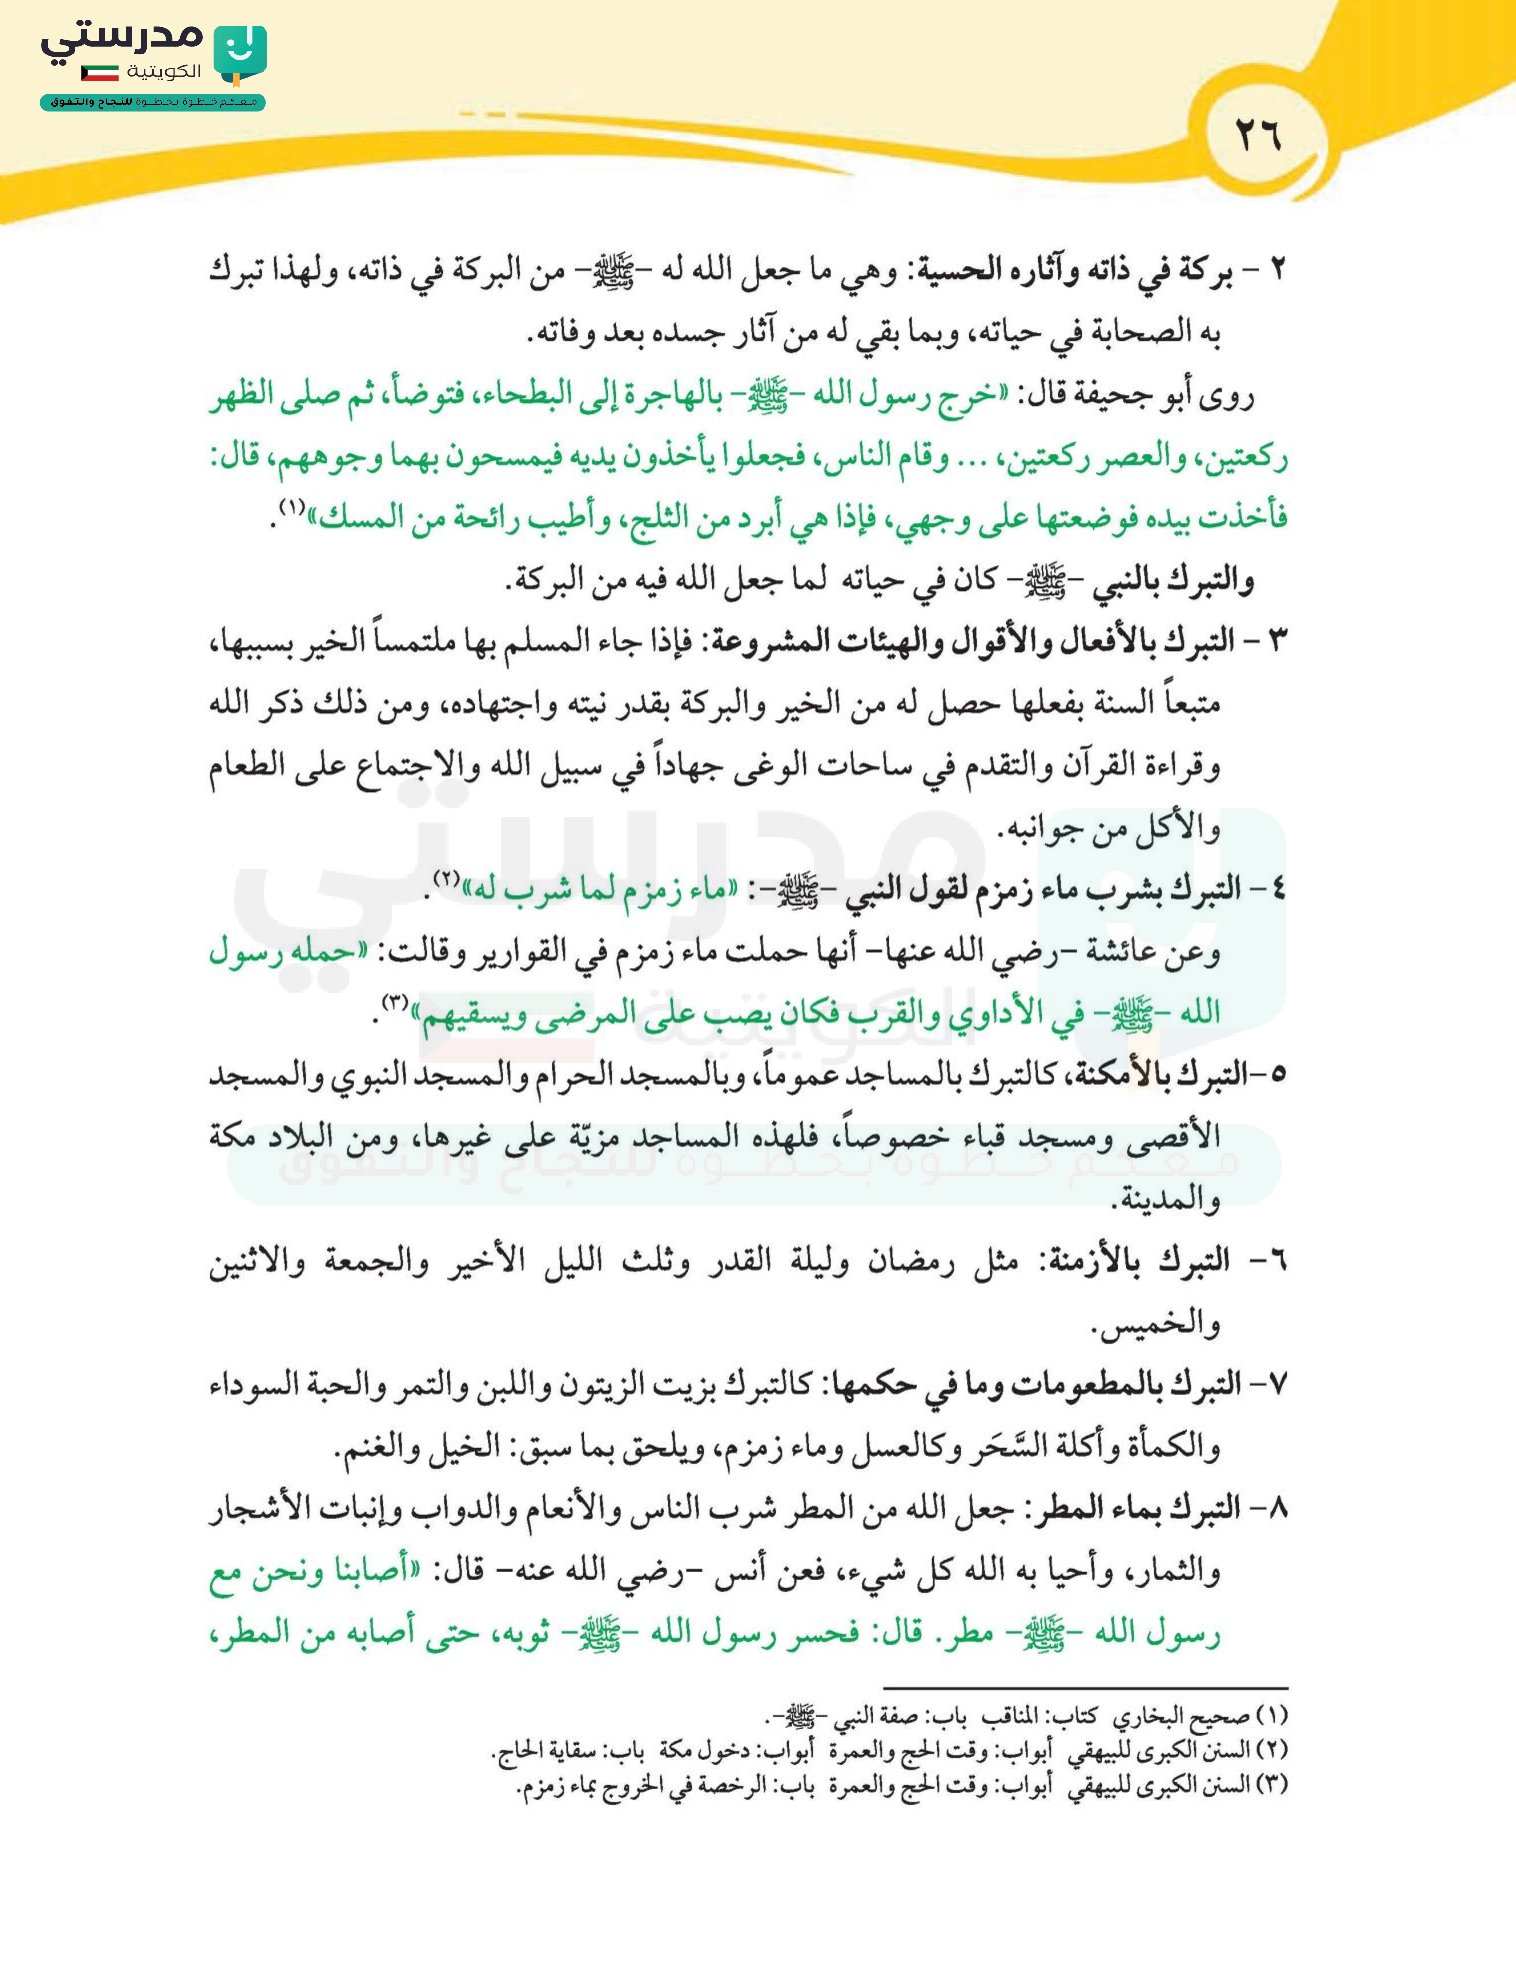 مدرستي
الكويتية
معكم خطوة بخطوة للنجاح والتفوق
٢٦
٢ - بركة في ذاته وآثاره الحسية: وهي ما جعل الله له -ﷺ- من البركة في ذاته، ولهذا تبرك
به الصحابة في حياته، وبما بقي له من آثار جسده بعد وفاته.
روى أبو جحيفة قال: «خرج رسول الله -ﷺ- بالهاجرة إلى البطحاء، فتوضأ، ثم صلى الظهر
ركعتين، والعصر ركعتين، ... وقام الناس، فجعلوا يأخذون يديه فيمسحون بهما وجوههم، قال:
فأخذت بيده فوضعتها على وجهي، فإذا هي أبرد من الثلج، وأطيب رائحة من المسك»(١).
والتبرك بالنبي -ﷺ- كان في حياته لما جعل الله فيه من البركة.
٣ - التبرك بالأفعال والأقوال والهيئات المشروعة: فإذا جاء المسلم بها ملتمساً الخير بسببها،
متبعاً السنة بفعلها حصل له من الخير والبركة بقدر نيته واجتهاده، ومن ذلك ذكر الله
وقراءة القرآن والتقدم في ساحات الوغى جهاداً في سبيل الله والاجتماع على الطعام
والأكل من جوانبه.
٤- التبرك بشرب ماء زمزم لقول النبي -ﷺ-: «ماء زمزم لما شرب له»(٢).
وعن عائشة -رضي الله عنها- أنها حملت ماء زمزم في القوارير وقالت: «حمله رسول
الله -ﷺ- في الأداوي والقرب فكان يصب على المرضى ويسقيهم»(٣).
٥-التبرك بالأمكنة، كالتبرك بالمساجد عموماً، وبالمسجد الحرام والمسجد النبوي والمسجد
الأقصى ومسجد قباء خصوصاً، فلهذه المساجد مزيّة على غيرها، ومن البلاد مكة
والمدينة.
٦- التبرك بالأزمنة: مثل رمضان وليلة القدر وثلث الليل الأخير والجمعة والاثنين
والخميس.
٧- التبرك بالمطعومات وما في حكمها: كالتبرك بزيت الزيتون واللبن والتمر والحبة السوداء
والكمأة وأكلة السَّحَر وكالعسل وماء زمزم، ويلحق بما سبق: الخيل والغنم.
٨- التبرك بماء المطر: جعل الله من المطر شرب الناس والأنعام والدواب وإنبات الأشجار
والثمار، وأحيا به الله كل شيء، فعن أنس -رضي الله عنه- قال: «أصابنا ونحن مع
رسول الله -ﷺ- مطر. قال: فحسر رسول الله -ﷺ- ثوبه، حتى أصابه من المطر،
(١) صحيح البخاري كتاب: المناقب باب: صفة النبي -ﷺ-.
(٢) السنن الكبرى للبيهقي أبواب: وقت الحج والعمرة أبواب: دخول مكة باب: سقاية الحاج.
(٣) السنن الكبرى للبيهقي أبواب: وقت الحج والعمرة باب: الرخصة في الخروج بماء زمزم.
مدرستي
الكويتية
معكم خطوة بخطوة للنجاح والتفوق